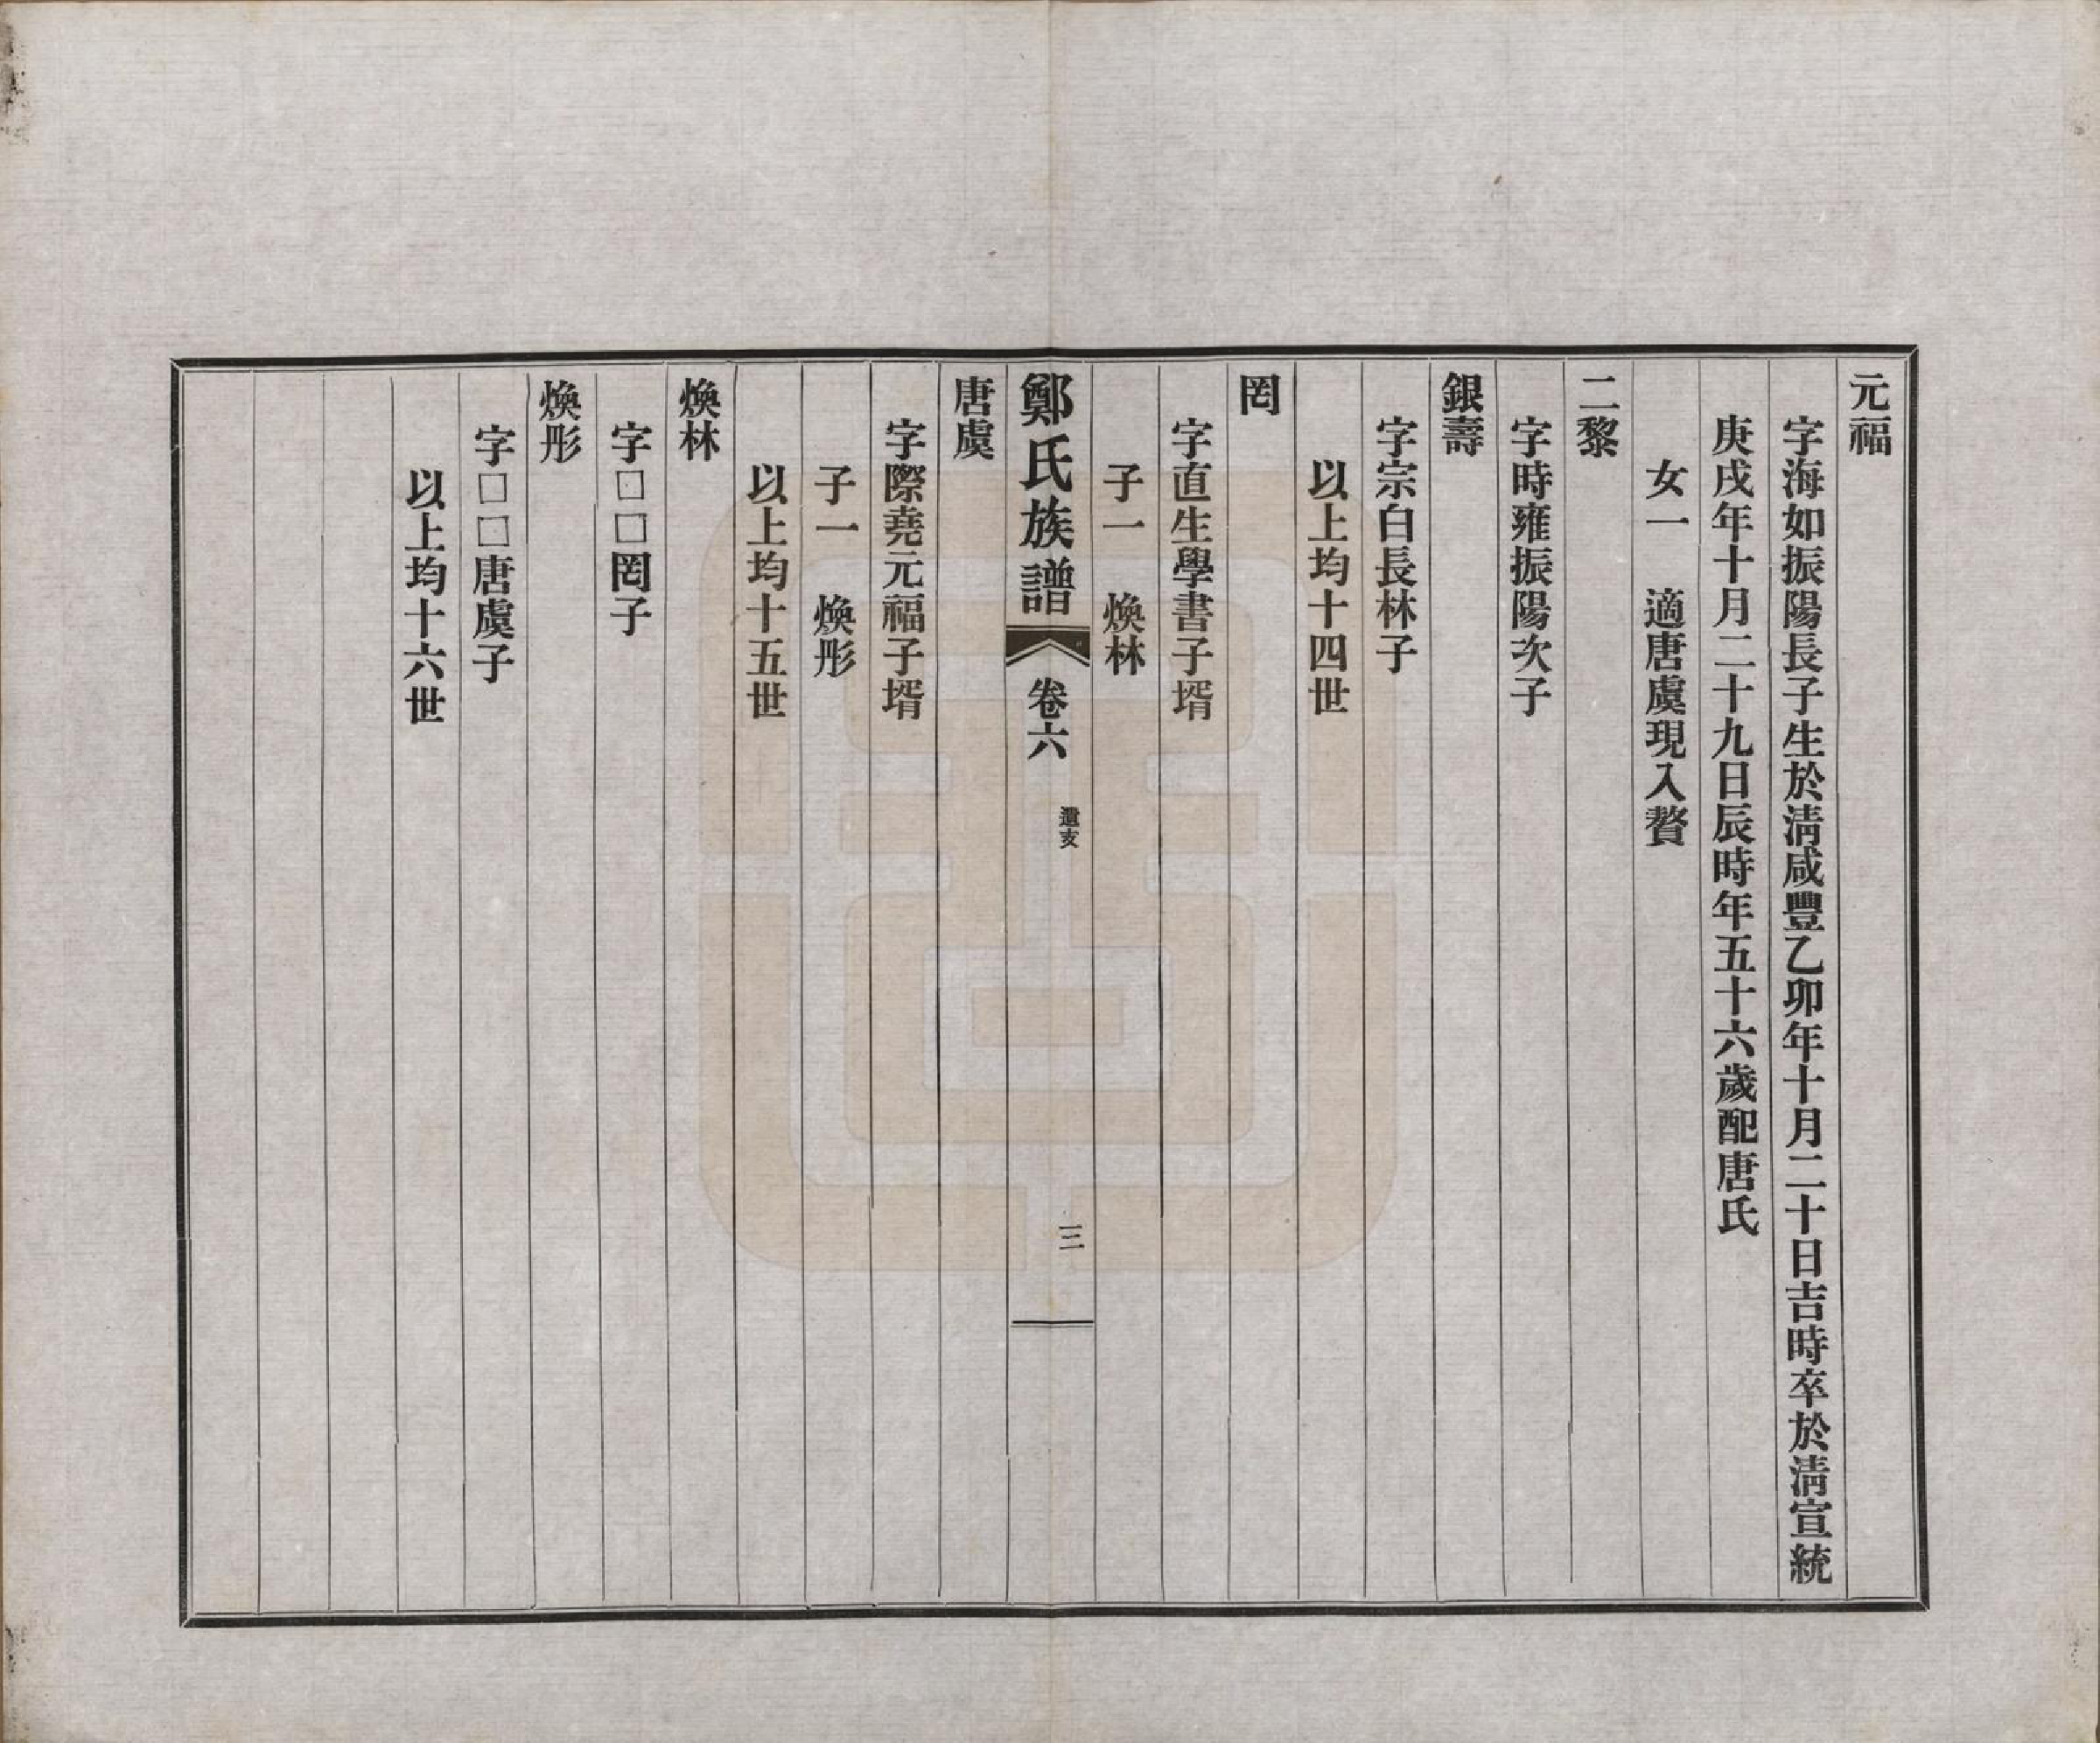 元福
字海如振陽長子生於清咸豐乙卯年十月二十日吉時卒於清宣統
庚戌年十月二十九日辰時年五十六歲配唐氏
女一　適唐虞現入贅
二黎
字時雍振陽次子
銀壽
字宗白長林子
以上均十四世
罔
字直生學書子壻
子一　煥林
鄭氏族譜　卷六　遺支　三
唐虞
字際堯元福子壻
子一　煥彤
以上均十五世
煥林
字□□罔子
煥彤
字□□唐虞子
以上均十六世